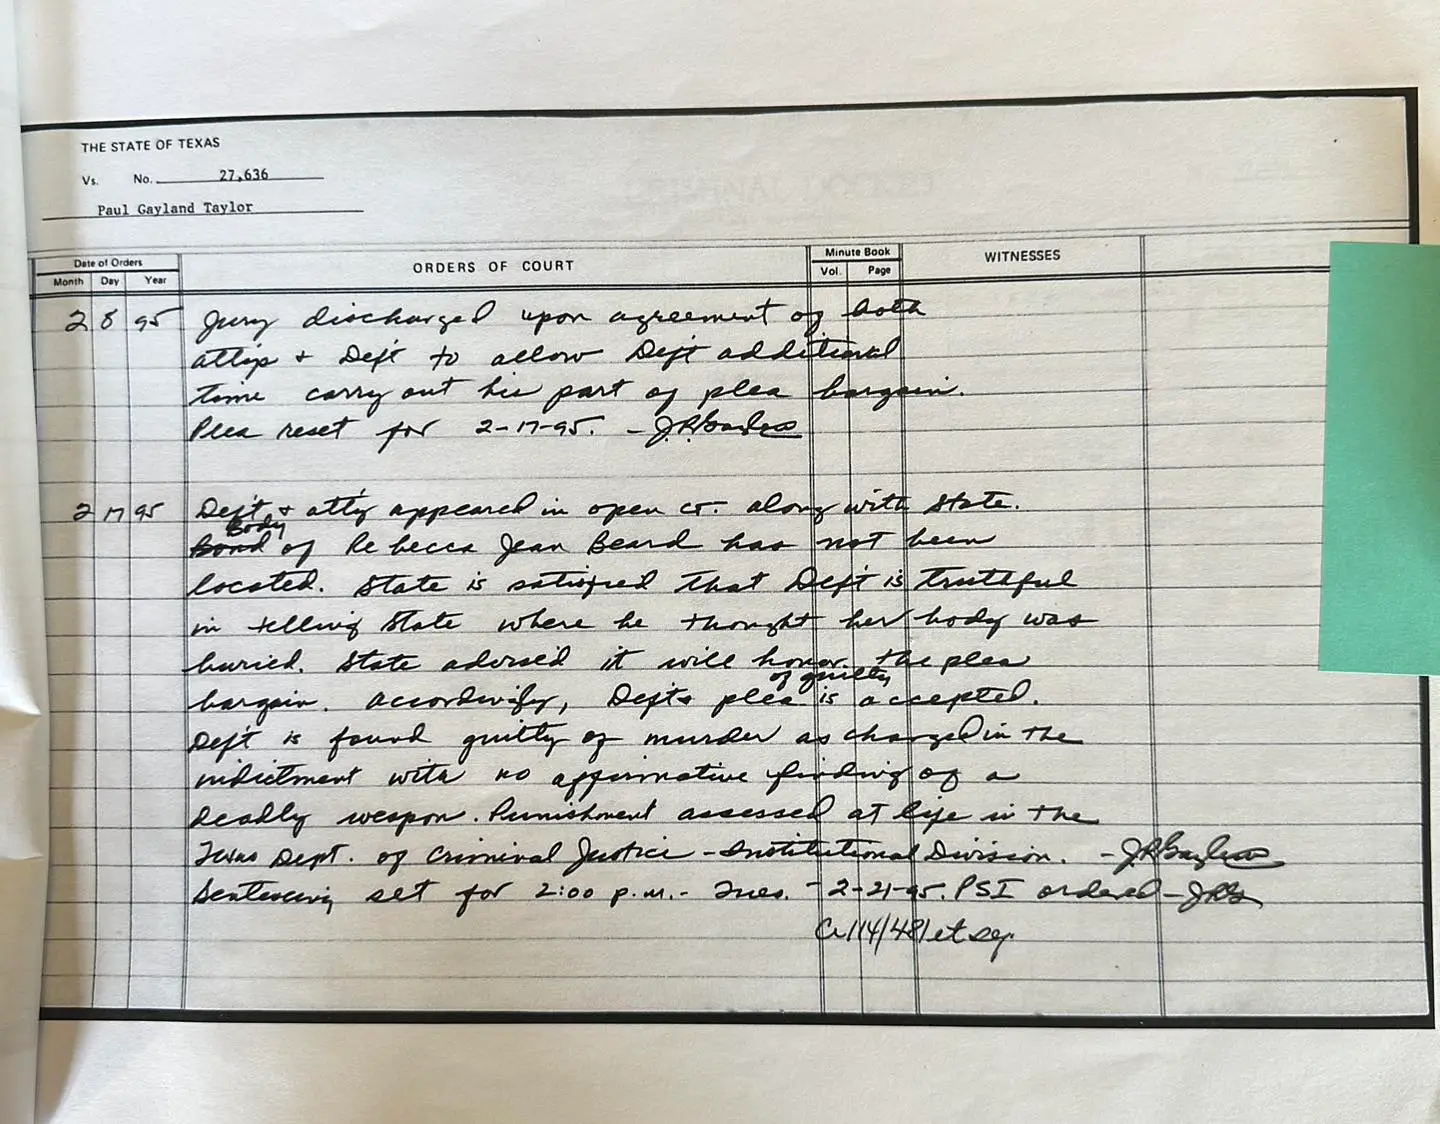 THE STATE OF TEXAS
Vs. No. 27,636
Paul Gayland Taylor
Date of Orders
Month Day Year
ORDERS OF COURT
Minute Book
Vol. Page
WITNESSES
2 8 95 Jury discharged upon agreement of both
attys + Def't to allow Def't additional
time carry out his part of plea bargain.
Plea reset for 2-17-95. -
2 17 95 Def't & att'y appeared in open ct. along with State.
Body
Bond of Rebecca Jean Beard has not been
located. State is satisfied that Def't is truthful
in telling State where he thought her body was
buried. State advised it will honor the plea
of guilty
bargain. Accordingly, Defts plea is accepted.
Def't is found guilty of murder as charged in the
indictment with no affirmative finding of a
deadly weapon. Punishment assessed at life in the
Texas Dept. of Criminal Justice - Institutional Division. -
Sentencing set for 2:00 p.m. - Tues. - 2-21-95. PSI ordered - JRG
114/481 et seq.